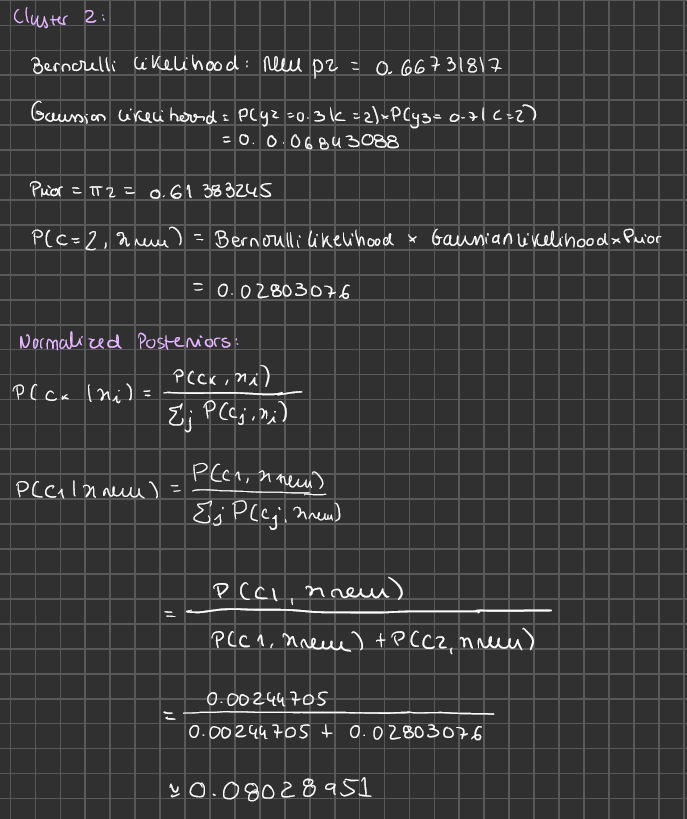 Cluster 2:
Bernoulli Likelihood: new p2 = 0.66731817
Gaussian Likelihood = P(y2 = 0.3 | c = 2) × P(y3 = 0.7 | c = 2)
= 0. 0.06843088
Prior = π2 = 0.61383245
P(c=2, xnew) = Bernoulli likelihood × Gaussian likelihood × Prior
= 0.02803076
Normalized Posteriors:
P(cₖ | xᵢ) = P(cₖ, xᵢ)
Σj P(cj, xᵢ)
P(c1 | xnew) = P(c1, xnew)
Σj P(cj, xnew)
= P(c1, xnew)
P(c1, xnew) + P(c2, xnew)
= 0.00244705
0.00244705 + 0.02803076
≃ 0.08028951